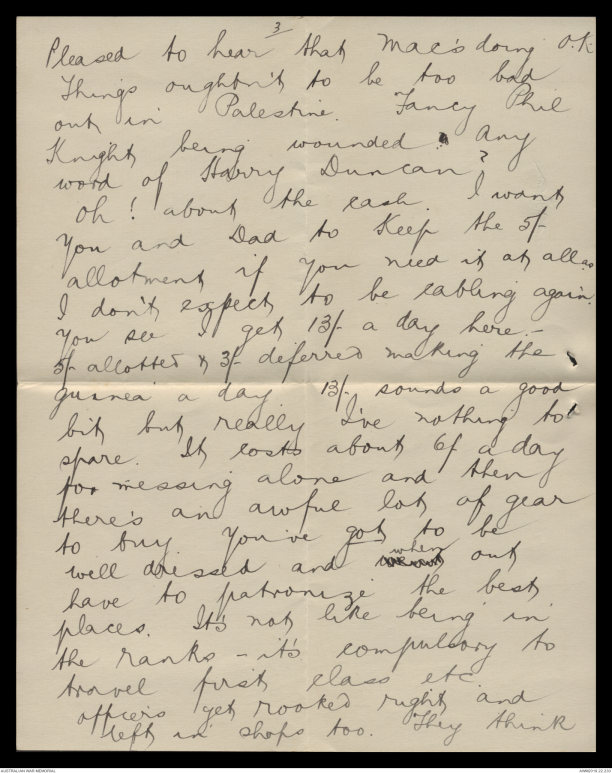 3
Pleased to hear that Mac's doing O.K
Things oughtn't to be too bad
out in Palestine. Fancy Phil
Knight being wounded. Any
word of Harry Duncan?
Oh! about the cash. I want
you and Dad to keep the 5/-
allotment if you need it at all as
I don't expect to be cabling again.
You see I get 13/- a day here. -
5/- allotted & 3/- deferred making the
guinea a day. 13/- sounds a good
bit but really I've nothing to
spare. It costs about 6/- a day
for messing alone and then
there's an awful lot of gear
to buy. You've got to be
well dressed and when out
have to patronize the best
places. It's not like being in
the ranks - it's compulsory to
travel first class etc.
officers get rooked right and
left in shops too. They think
AUSTRALIAN WAR MEMORIAL